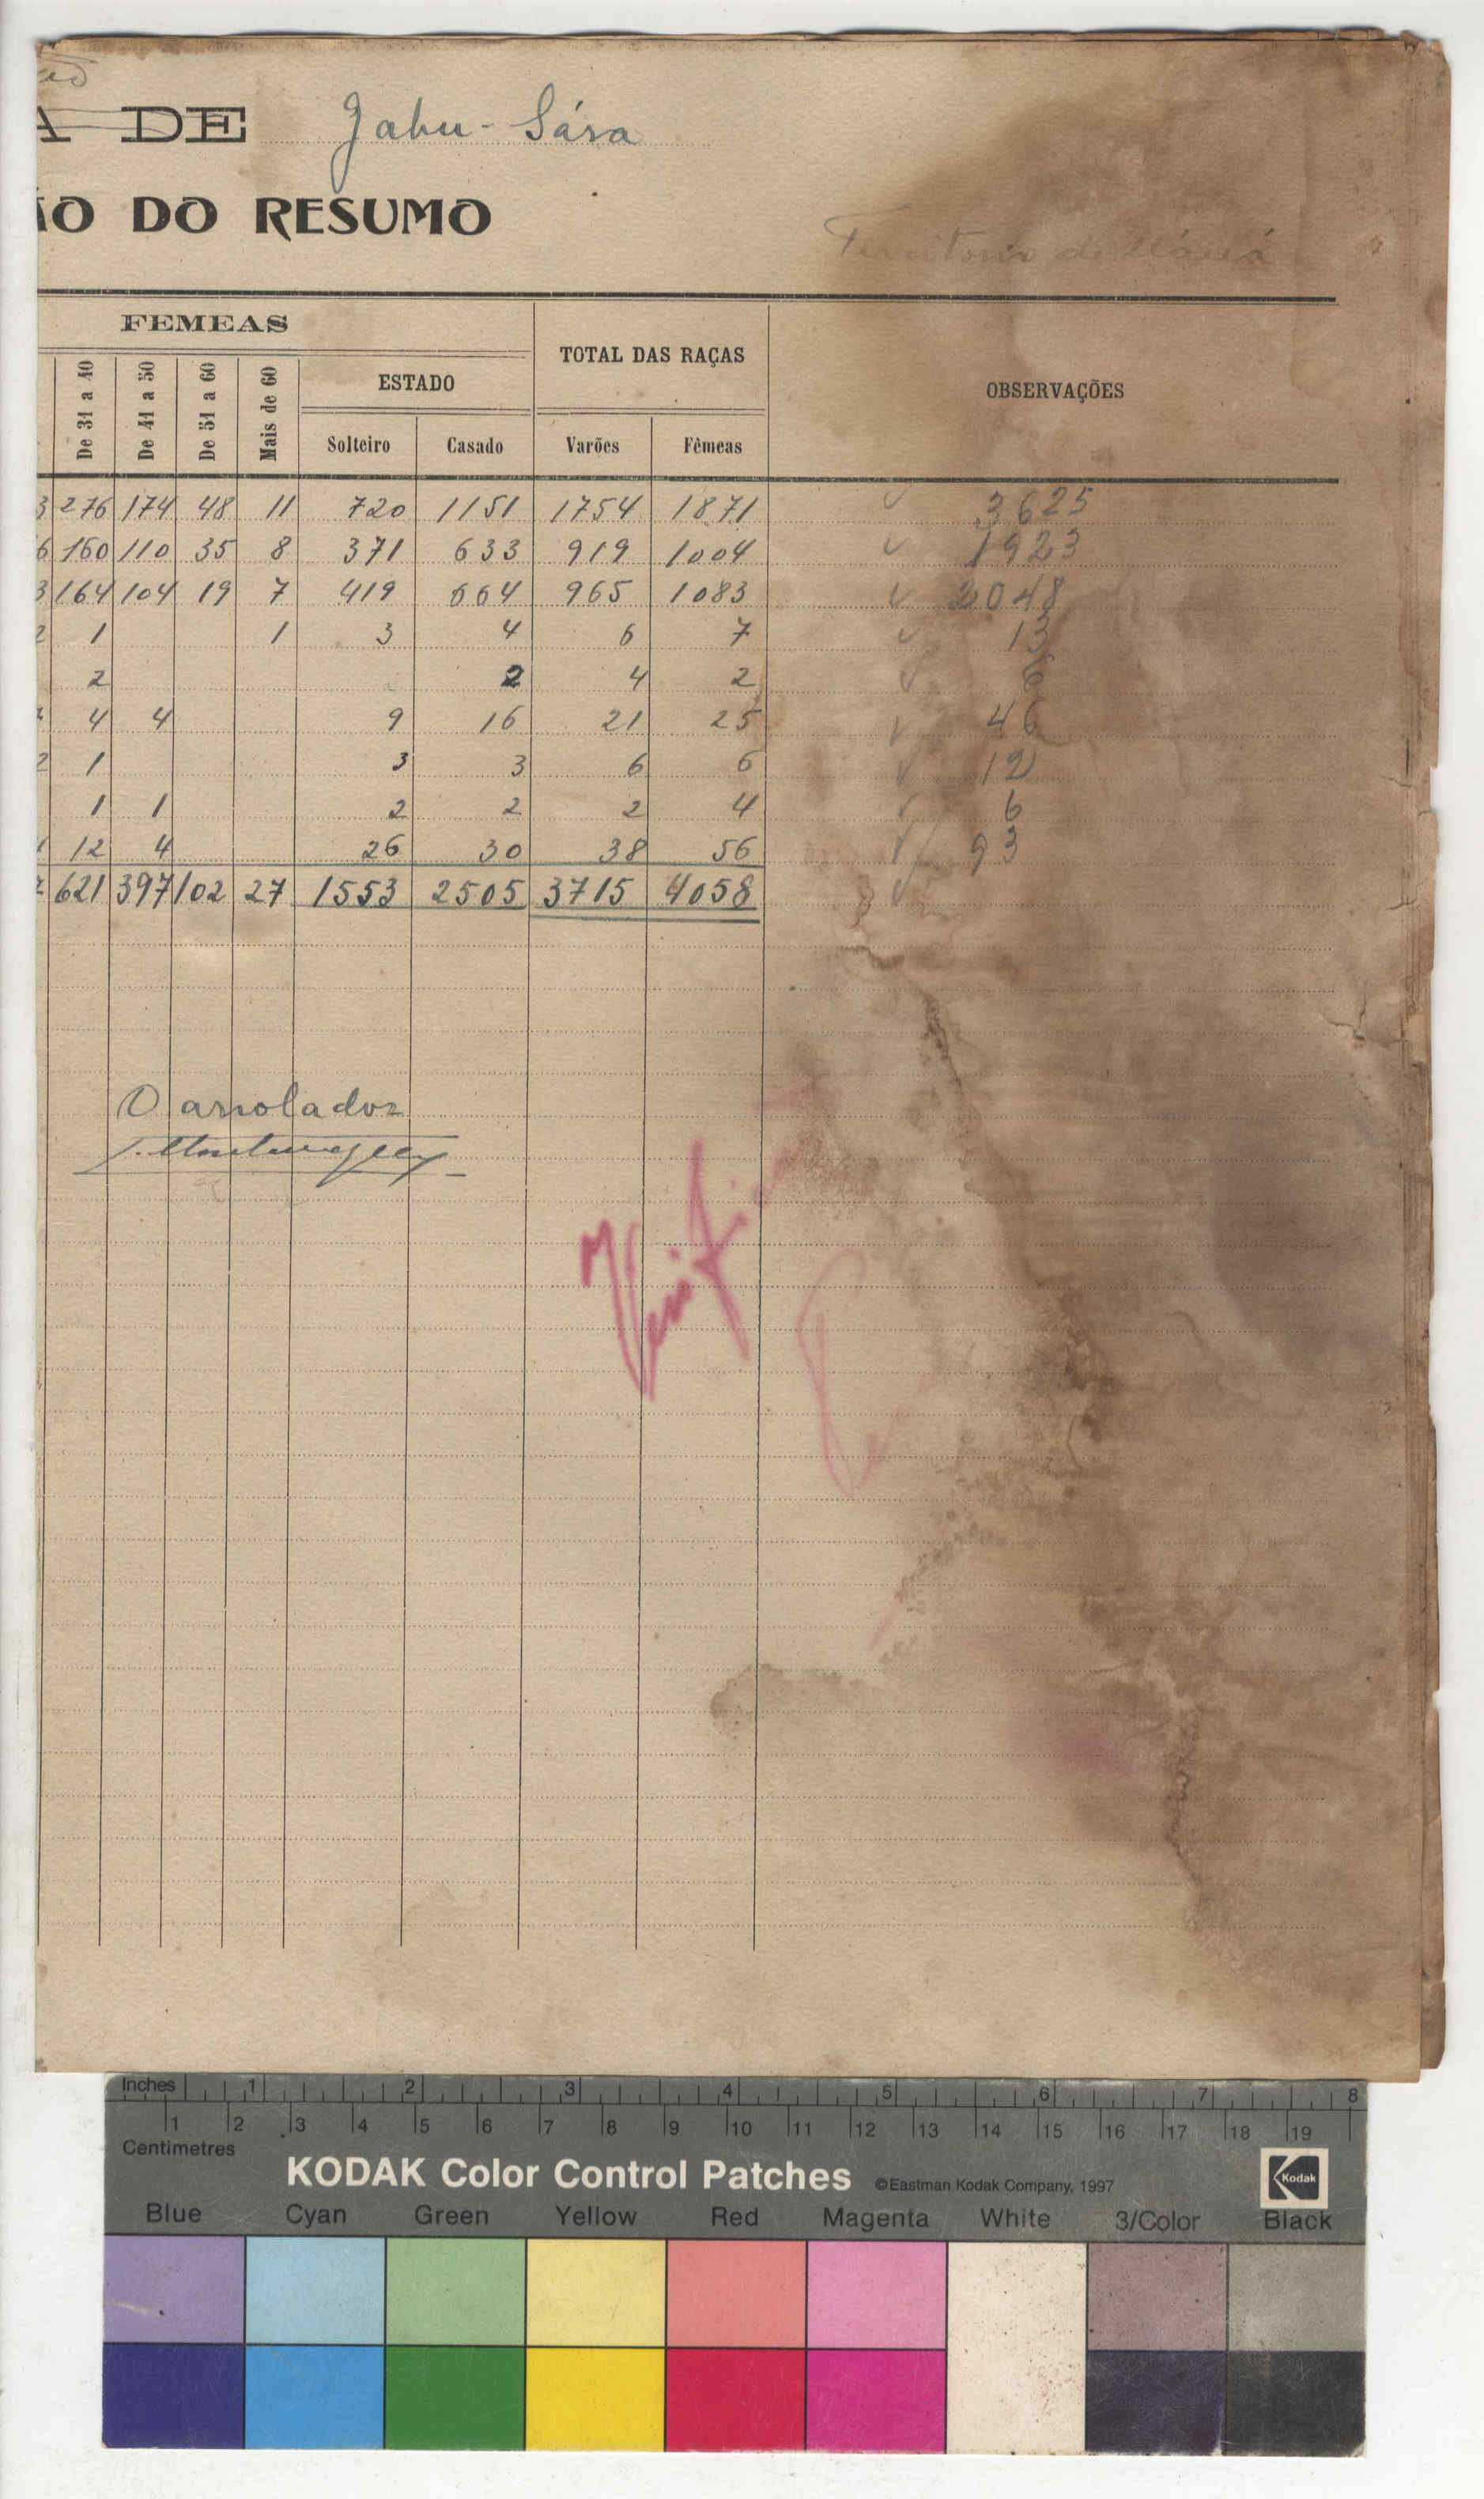 A DE Jahu-Sára
ÃO DO RESUMO
Territorio de
FEMEAS
TOTAL DAS RAÇAS
OBSERVAÇÕES
De 31 a 40 De 41 a 50 De 51 a 60 Mais de 60 ESTADO
Solteiro Casado Varões Fêmeas
3 276 174 48 11 720 1151 1754 1871 3625
6 160 110 35 8 371 633 919 1004 1923
3 164 104 19 7 419 664 965 1083 2048
2 1 1 3 4 6 7 13
2 2 4 2 6
4 4 9 16 21 25 46
2 1 3 3 6 6 12
1 1 2 2 2 4 6
1 12 4 26 30 38 56 93
621 397 102 27 1553 2505 3715 4058
O arrolador
Inches 1 2 3 4 5 6 7 8
1 2 3 4 5 6 7 8 9 10 11 12 13 14 15 16 17 18 19
Centimetres
KODAK Color Control Patches ©Eastman Kodak Company, 1997 Kodak
Blue Cyan Green Yellow Red Magenta White 3/Color Black